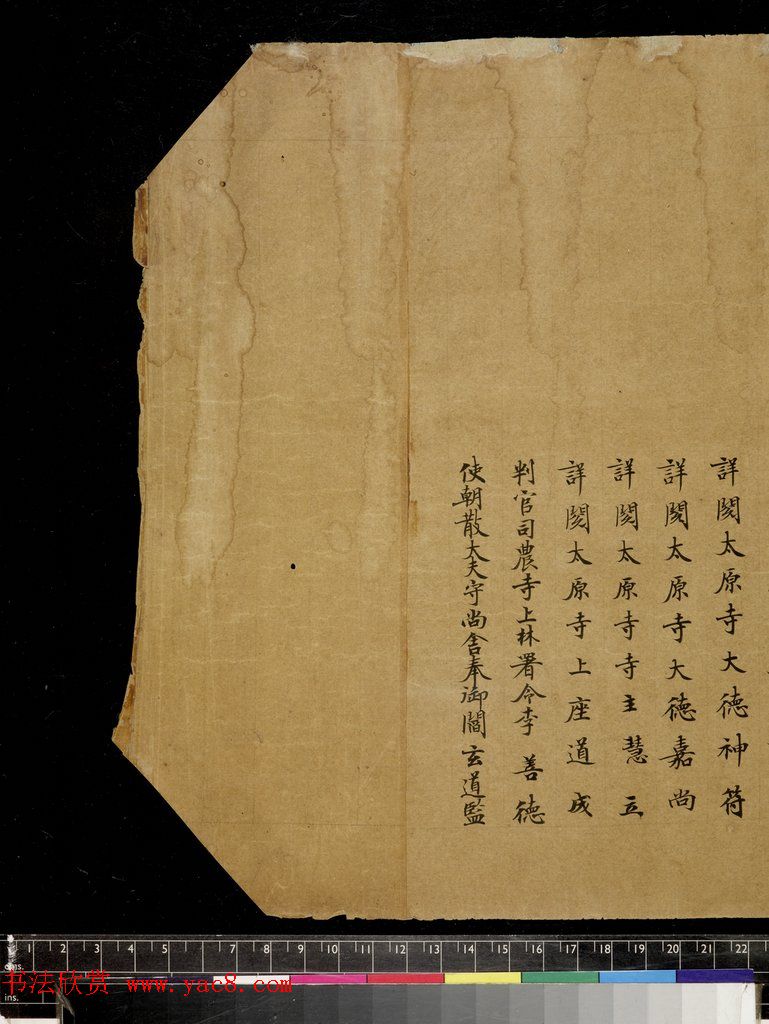 詳閱太原寺大德神符
詳閱太原寺大德嘉尚
詳閱太原寺寺主慧立
詳閱太原寺上座道成
判官司農寺上林署令李善德
使朝散大夫守尚舍奉御閻玄道監
1 2 3 4 5 7 8 9 10 11 12 13 14 15 16 17 18 19 20 21 22
cms.
书法欣赏 www.yac8.com
ins.